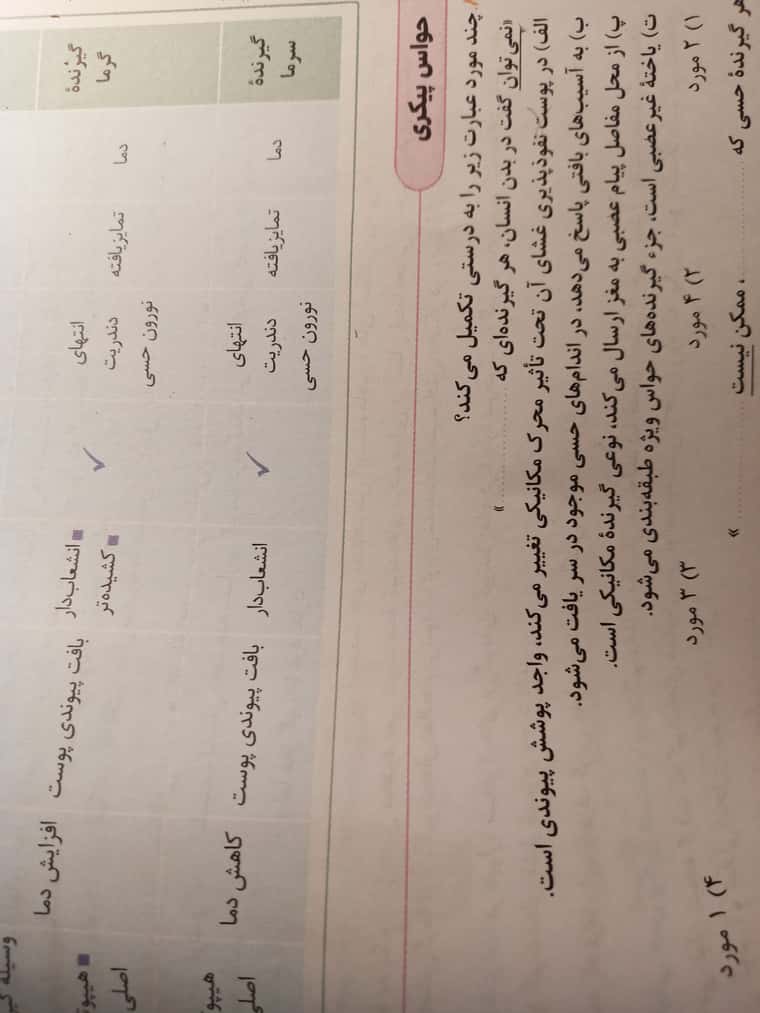 گیرندهٔ
گرما
دما
تمایزیافته
انتهای
دندریت
نورون حسی
✓
■ انشعاب‌دار
■ کشیده‌تر
بافت پیوندی پوست
افزایش دما
اصلی
گیرندهٔ
سرما
دما
تمایزیافته
انتهای
دندریت
نورون حسی
✓
انشعاب‌دار
بافت پیوندی پوست
کاهش دما
اصلی
حواس پیکری
چند مورد عبارت زیر را به درستی تکمیل می‌کند؟
«نمی‌توان گفت در بدن انسان، هر گیرنده‌ای که .......... »
الف) در پوست نفوذپذیری غشای آن تحت تأثیر محرک مکانیکی تغییر می‌کند، واجد پوشش پیوندی است.
ب) به آسیب‌های بافتی پاسخ می‌دهد، در اندام‌های حسی موجود در سر یافت می‌شود.
پ) از محل مفاصل پیام عصبی به مغز ارسال می‌کند، نوعی گیرندهٔ مکانیکی است.
ت) یاختهٔ غیرعصبی است، جزء گیرنده‌های حواس ویژه طبقه‌بندی می‌شود.
۱) ۲ مورد ۲) ۴ مورد ۳) ۳ مورد ۴) ۱ مورد
هر گیرندهٔ حسی که .......... ، ممکن نیست .......... »